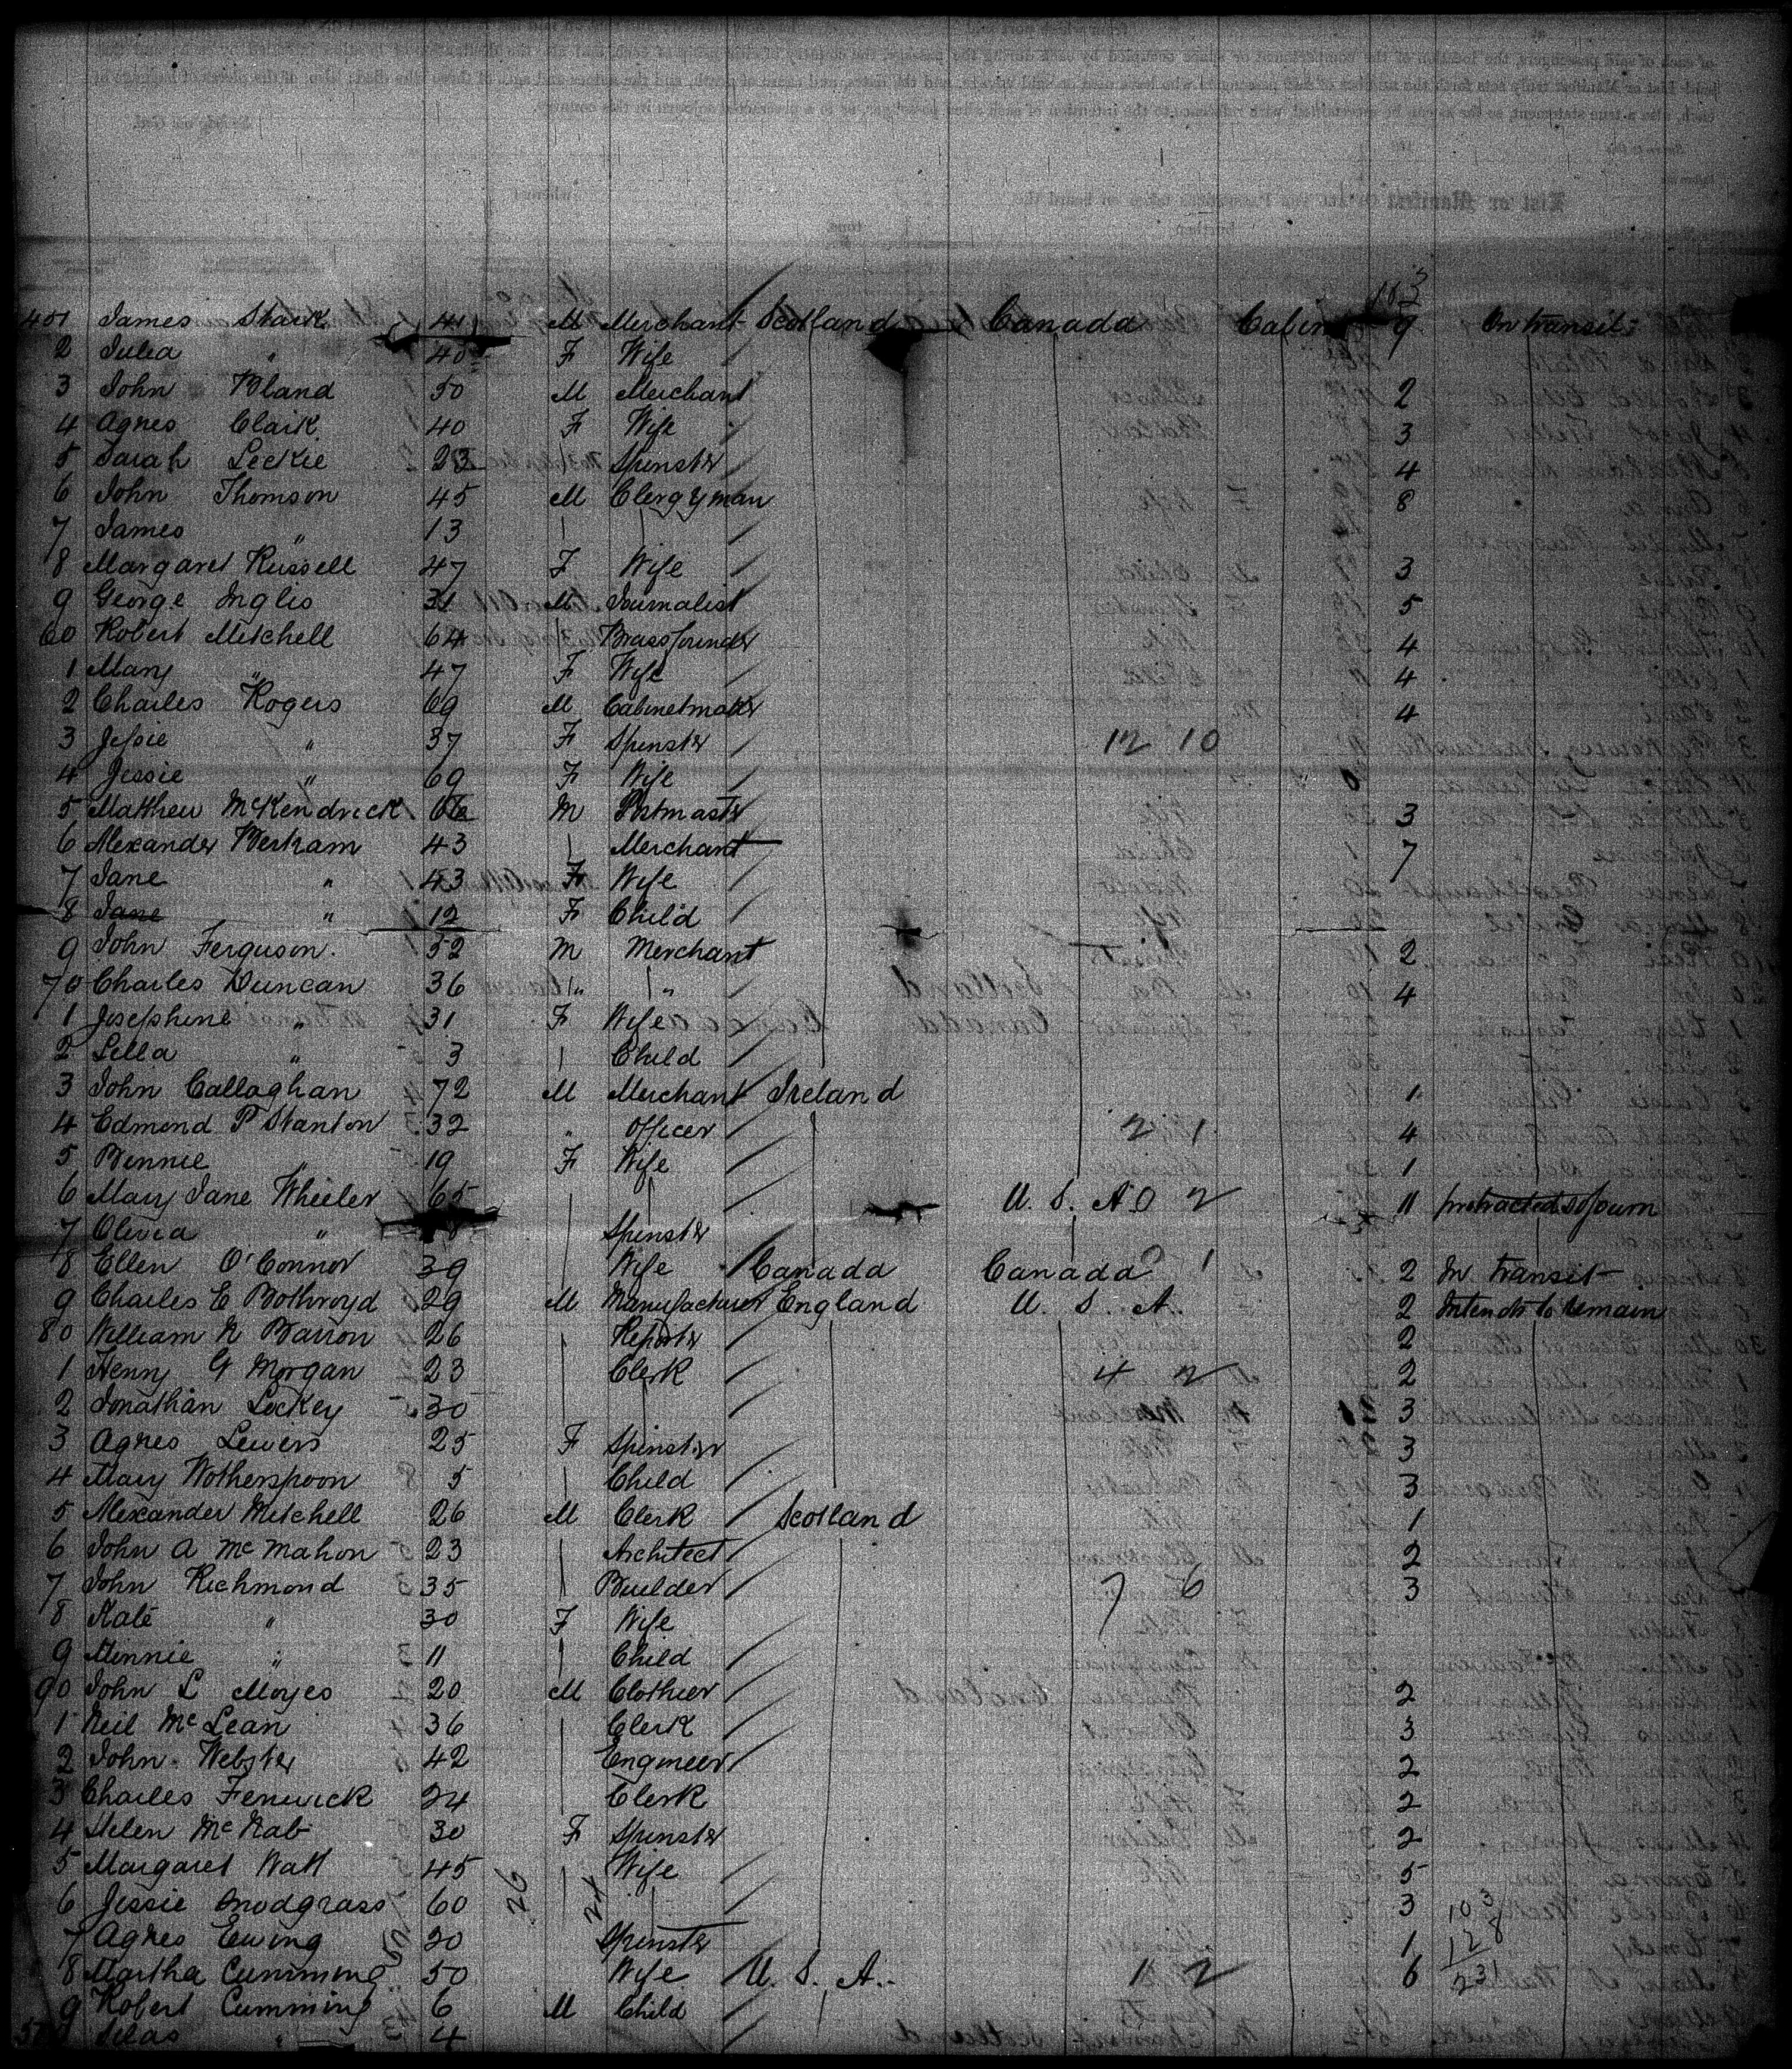 103
James Stark 41 M Merchant Scotland Canada Cabin 9 In transit
2 Julia " 40 F Wife
3 John Bland 50 M Merchant 2
4 Agnes Clark 40 F Wife 3
5 Sarah Leckie 23 Spinster 4
6 John Thomson 45 M Clergyman 8
7 James " 13
8 Margaret Russell 47 F Wife 3
9 George Inglis 31 M Journalist 5
60 Robert Mitchell 64 Brassfounder 4
1 Mary " 47 F Wife 4
2 Charles Rogers 69 M Cabinetmaker 4
3 Jessie " 37 F Spinster 12 10
4 Jessie " 69 F Wife
5 Matthew McKendrick M Postmaster 3
6 Alexander Bertram 43 Merchant 7
7 Jane " 43 F Wife
8 Jane " 12 F Child
9 John Ferguson. 52 M Merchant 2
70 Charles Duncan 36 " " 4
1 Josephine " 31 F Wife
2 Lilla " 3 Child
3 John Callaghan 72 M Merchant Ireland 1
4 Edmond P Stanton 32 " Officer 2 1 4
5 Bennie " 19 F Wife 1
6 Mary Jane Wheeler 65 U. S. A 0 2 11 protracted sojourn
7 Olivia " Spinster
8 Ellen O'Connor 39 Wife Canada Canada 1 2 In transit
9 Charles E Bothroyd 29 M Manufacturer England U. S. A. 2 Intends to remain
80 William N Barron 26 Reporter 2
1 Henry G Morgan 23 Clerk 4 2 2
2 Jonathan Lockey 30 3
3 Agnes Lewers 25 F Spinster 3
4 Mary Wotherspoon 5 Child 3
5 Alexander Mitchell 26 M Clerk Scotland 1
6 John A McMahon 23 Architect 2
7 John Richmond 35 Builder 7 6 3
8 Kate " 30 F Wife
9 Minnie " 11 Child
90 John L Moyes 20 M Clothier 2
1 Neil McLean 36 Clerk 3
2 John Webster 42 Engineer 2
3 Charles Fenwick 24 Clerk 2
4 Helen McNab 30 F Spinster 2
5 Margaret Watt 45 Wife 5
6 Jessie Snodgrass 60 26 24 3 103
7 Agnes Ewing 20 Spinster 1 128
8 Martha Cumming 50 Wife U. S. A. 1 2 6 231
9 Robert Cumming 6 M Child
Silas " 4